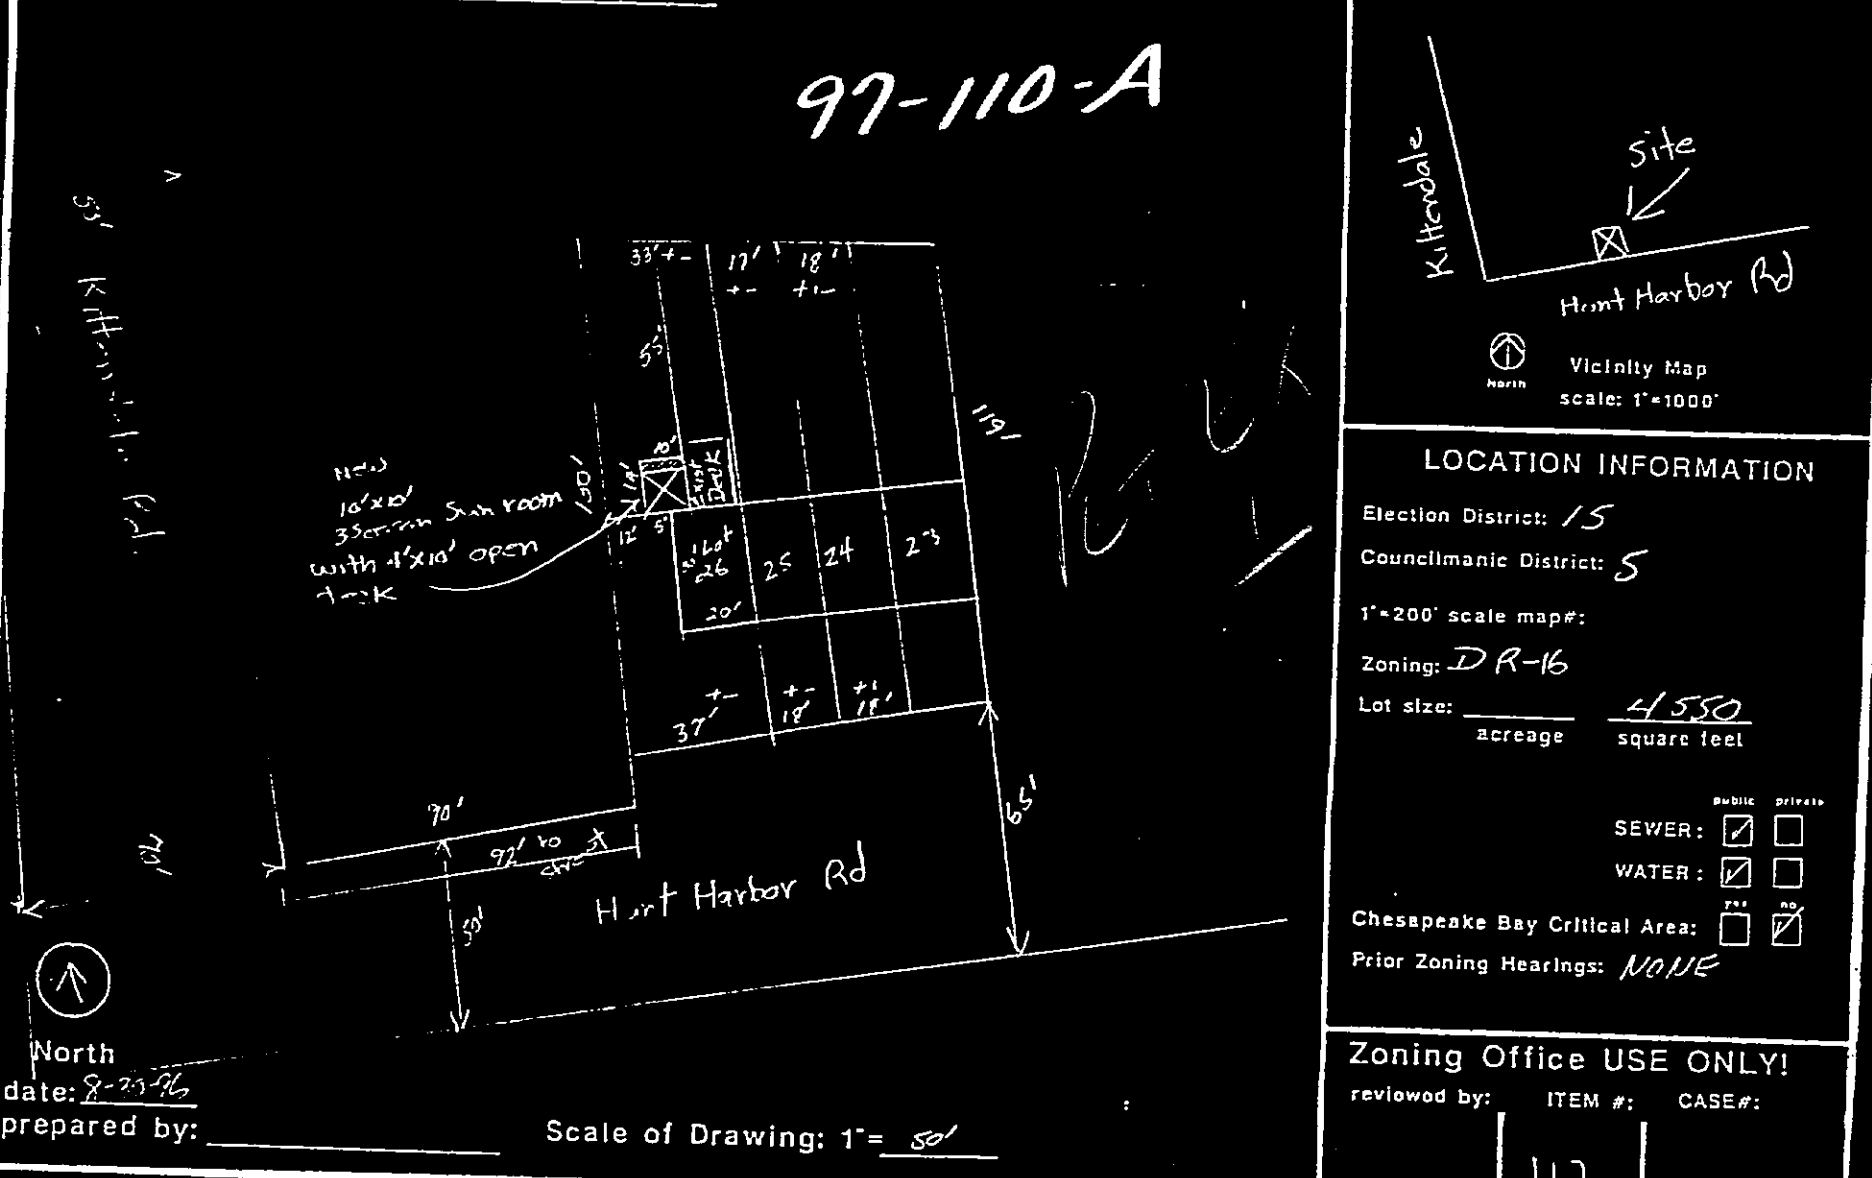 97-110-A
33'+-
17'
+-
18'
+-
55'
119'
New
10'x10'
3 Season Sun room
with 4'x10' open
deck
130'
10'
14'
Exist
Deck
12'
5'
Lot
26
25
24
23
20'
+-
37'
+-
18'
+-
18'
90'
92' to
65'
50'
Hunt Harbor Rd
North
date: 8-23-96
prepared by:
Scale of Drawing: 1"= 50'
Site
Kittendale
Hunt Harbor Rd
North
Vicinity Map
scale: 1"=1000'
LOCATION INFORMATION
Election District: 15
Councilmanic District: 5
1"=200' scale map#:
Zoning: DR-16
Lot size: 4550
acreage square feet
public private
SEWER:
WATER:
yes no
Chesapeake Bay Critical Area:
Prior Zoning Hearings: NONE
Zoning Office USE ONLY!
reviewed by: ITEM #: CASE#: